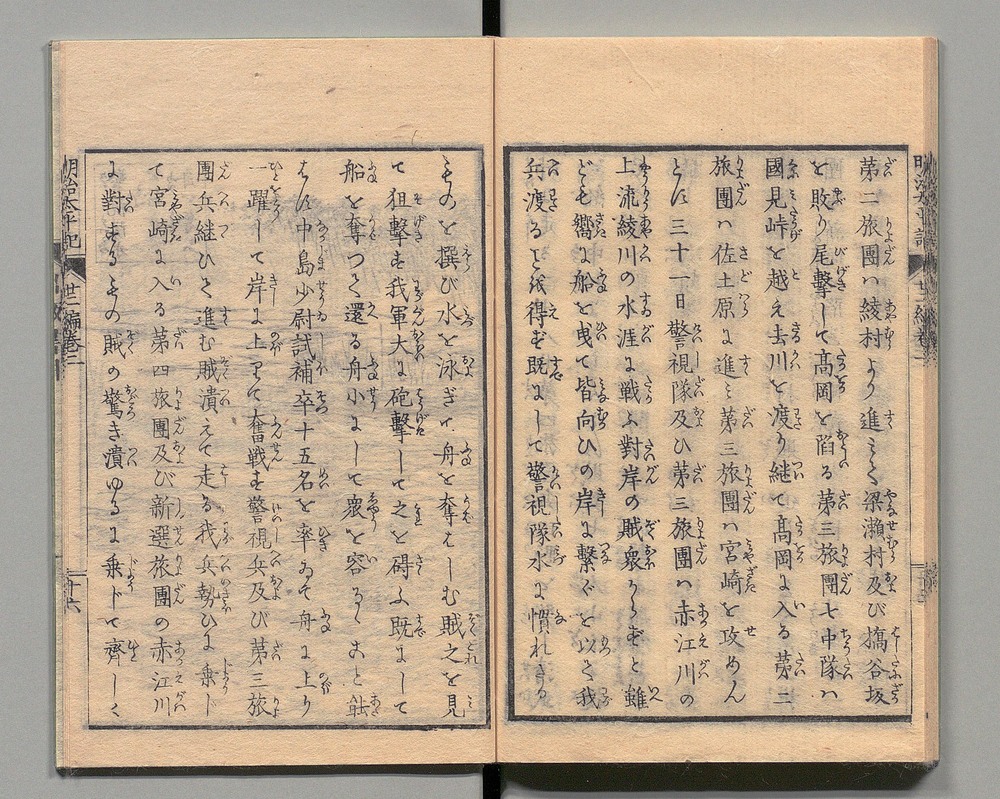 第二旅團ハ綾村より進ミて梁瀬村及び搞谷坂
を敗り尾撃して髙岡を陥る第三旅團七中隊ハ
國見峠を越え去川を渡り継て髙岡に入る第二
旅團ハ佐土原に進ミ第三旅團ハ宮崎を攻めん
とす三十一日警視隊及ひ第三旅團ハ赤江川の
上流綾川の水涯に戦ふ對岸の賊衆からずと雖
ども嚮に船を曳て皆向ひの岸に繋ぐを以て我
兵渡るを得ず既にして警視隊水に慣れたる
ものを撰び水を泳ぎて舟を奪はしむ賊之を見
て狙撃す我軍大に砲撃して之を碍ふ既にして
船を奪つて還る舟小にして衆を容るゝこと能
はず中島少尉試補卒十五名を率ゐて舟に上り
一躍して岸に上りて奮戦す警視兵及び第三旅
團兵継ひて進む賊潰えて走る我兵勢ひに乗じ
て宮崎に入る第四旅團及び新選旅團の赤江川
に對するもの賊の驚き潰ゆるに乗じて齊しく
明治太平記
廿二編巻二
十六